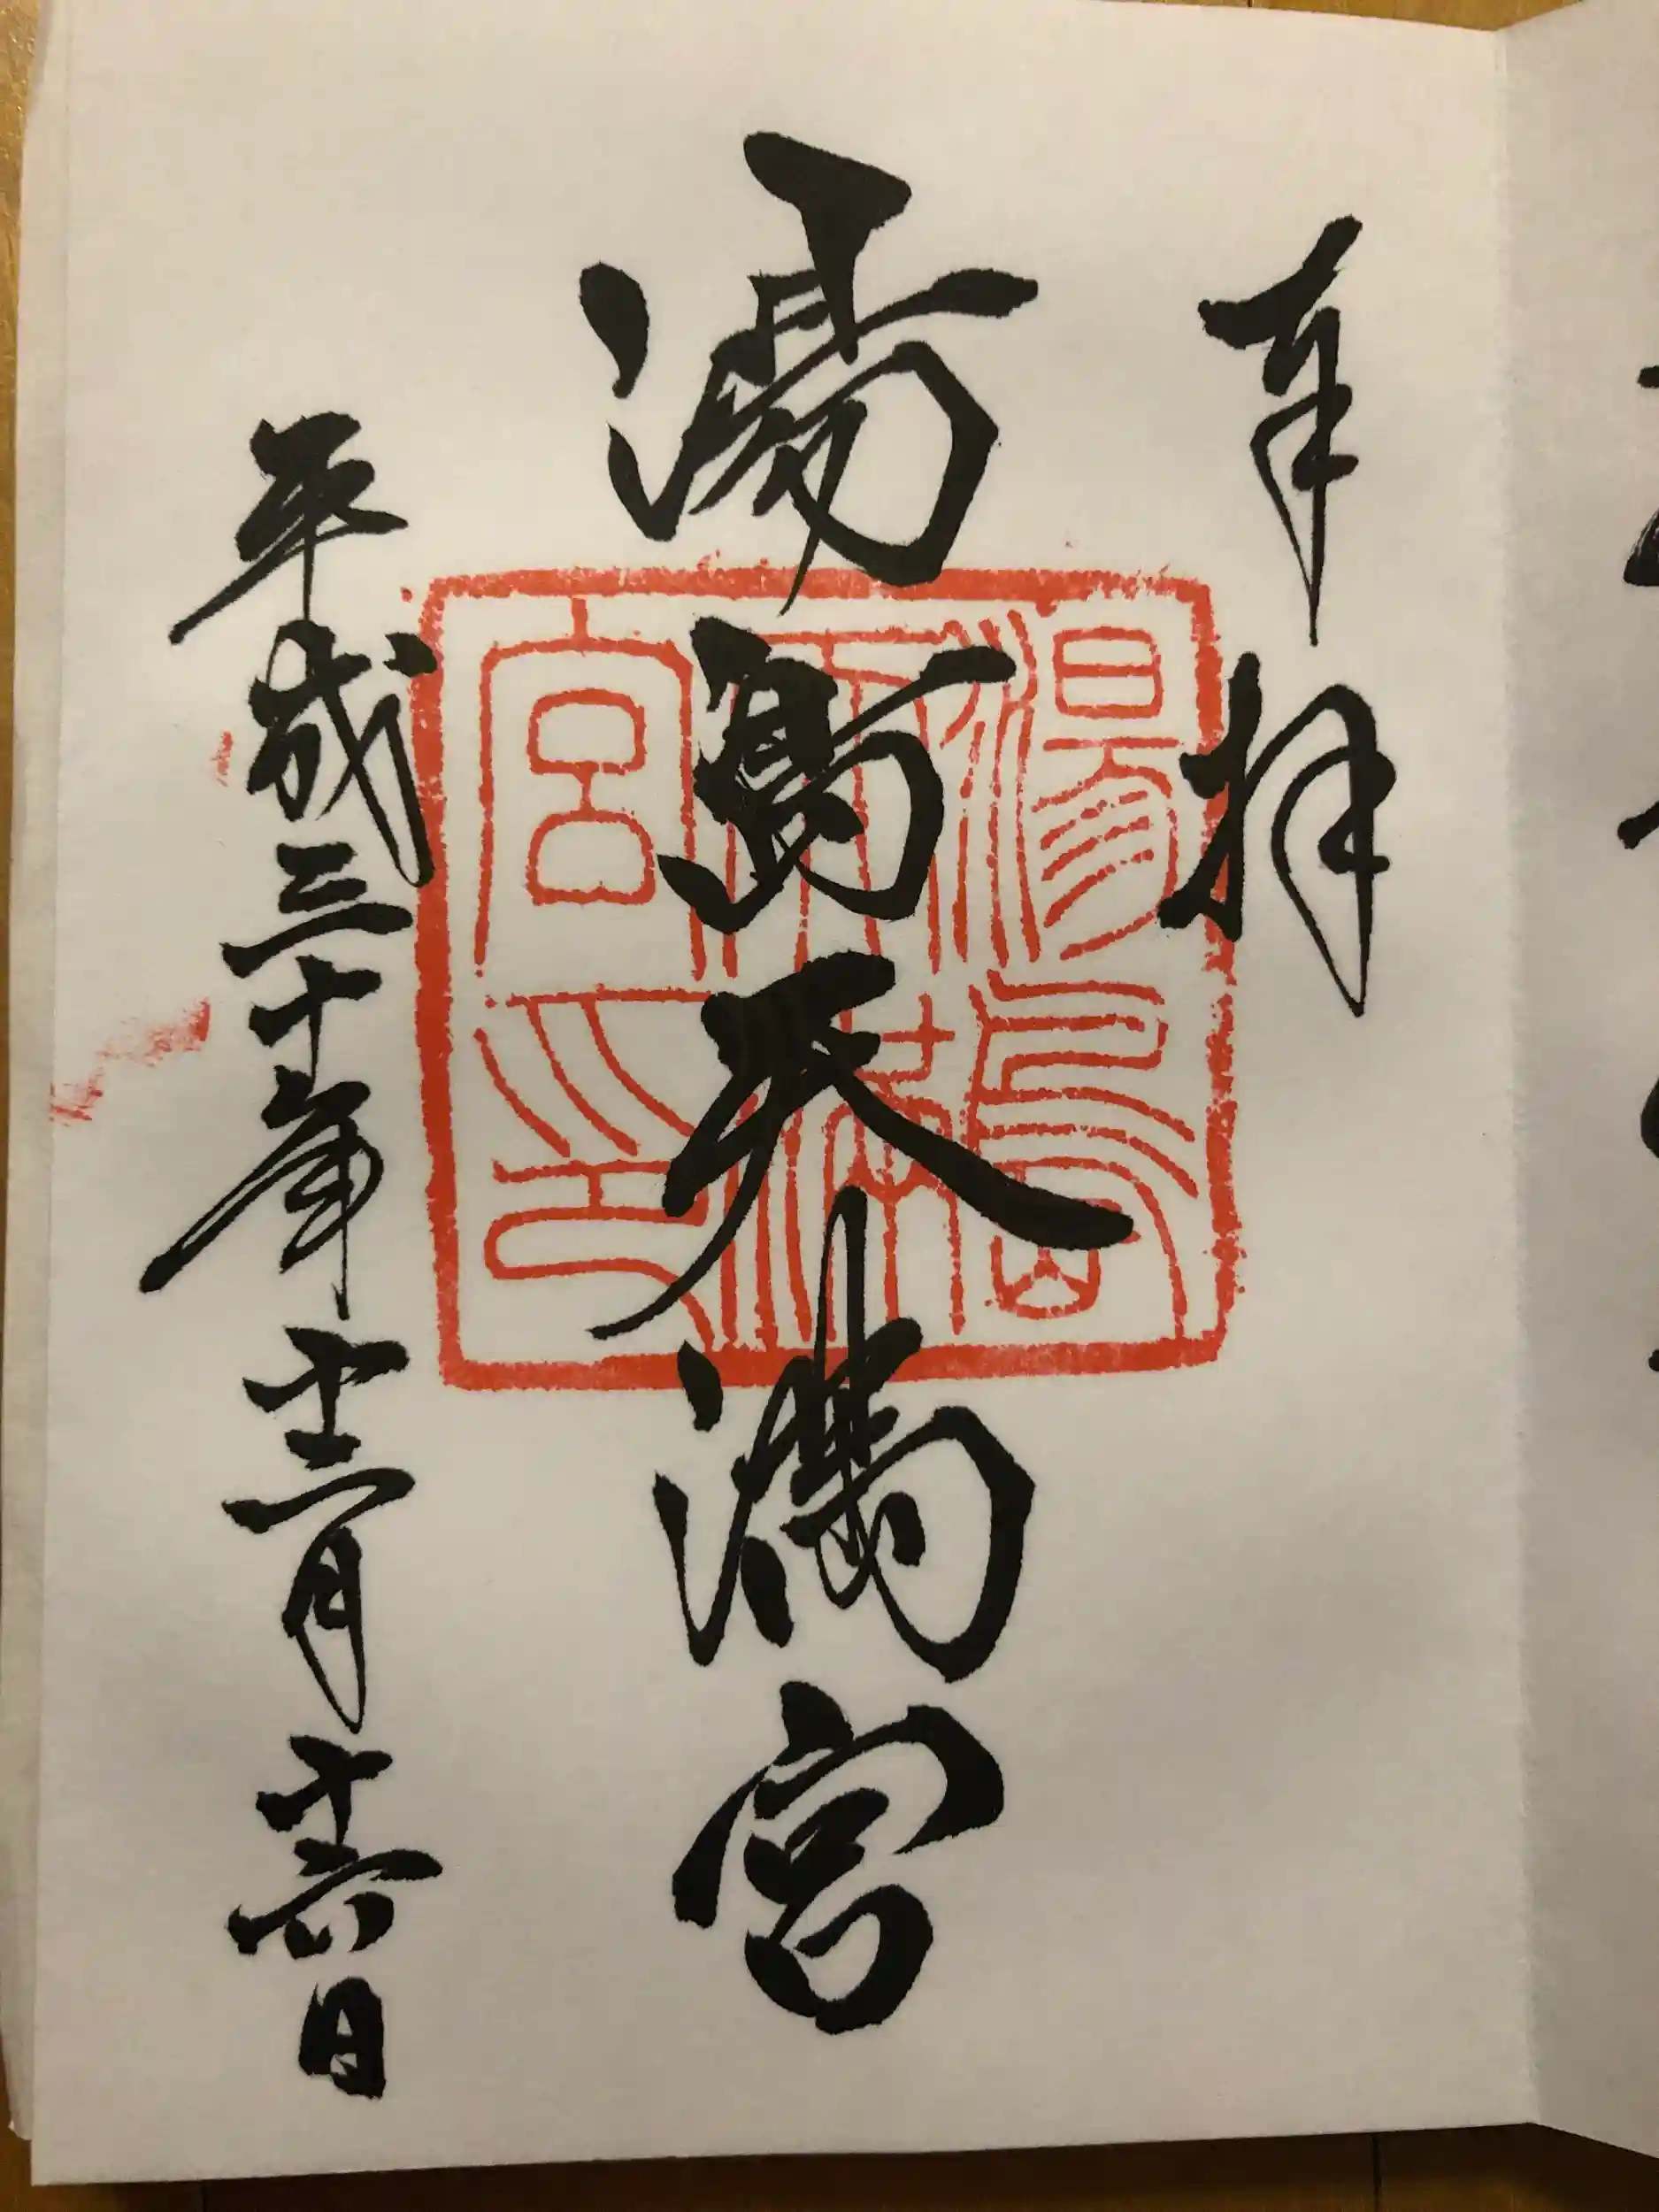 奉拝
湯島天満宮
湯島
天満
宮印
平成三十年十二月十六日